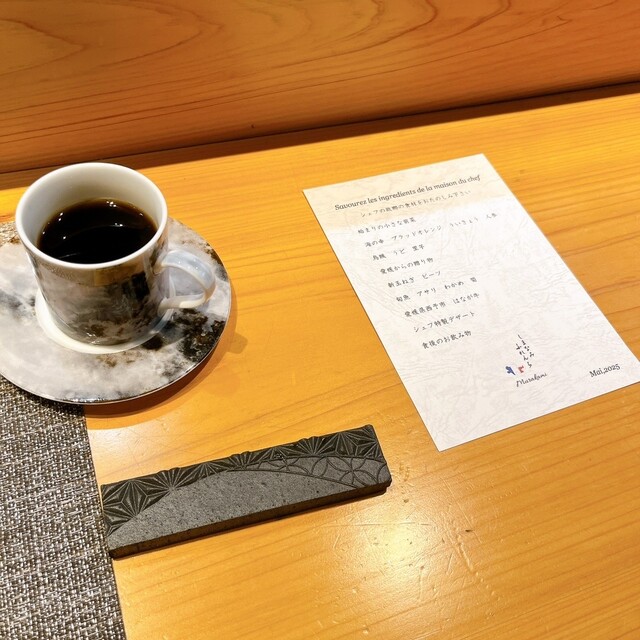 Savourez les ingredients de la maison du chef
シェフの故郷の食材をおたのしみ下さい
始まりの小さな前菜
海の幸 ブラッドオレンジ ういきょう 人参
鳥賊 リビ 里芋
愛媛からの贈り物
新玉ねぎ ビーツ
旬魚 アサリ わかめ 筍
愛媛県西予市 はなが牛
シェフ特製デザート
食後のお飲み物
しまなみ
ふれんち
Murakami
Mai,2025